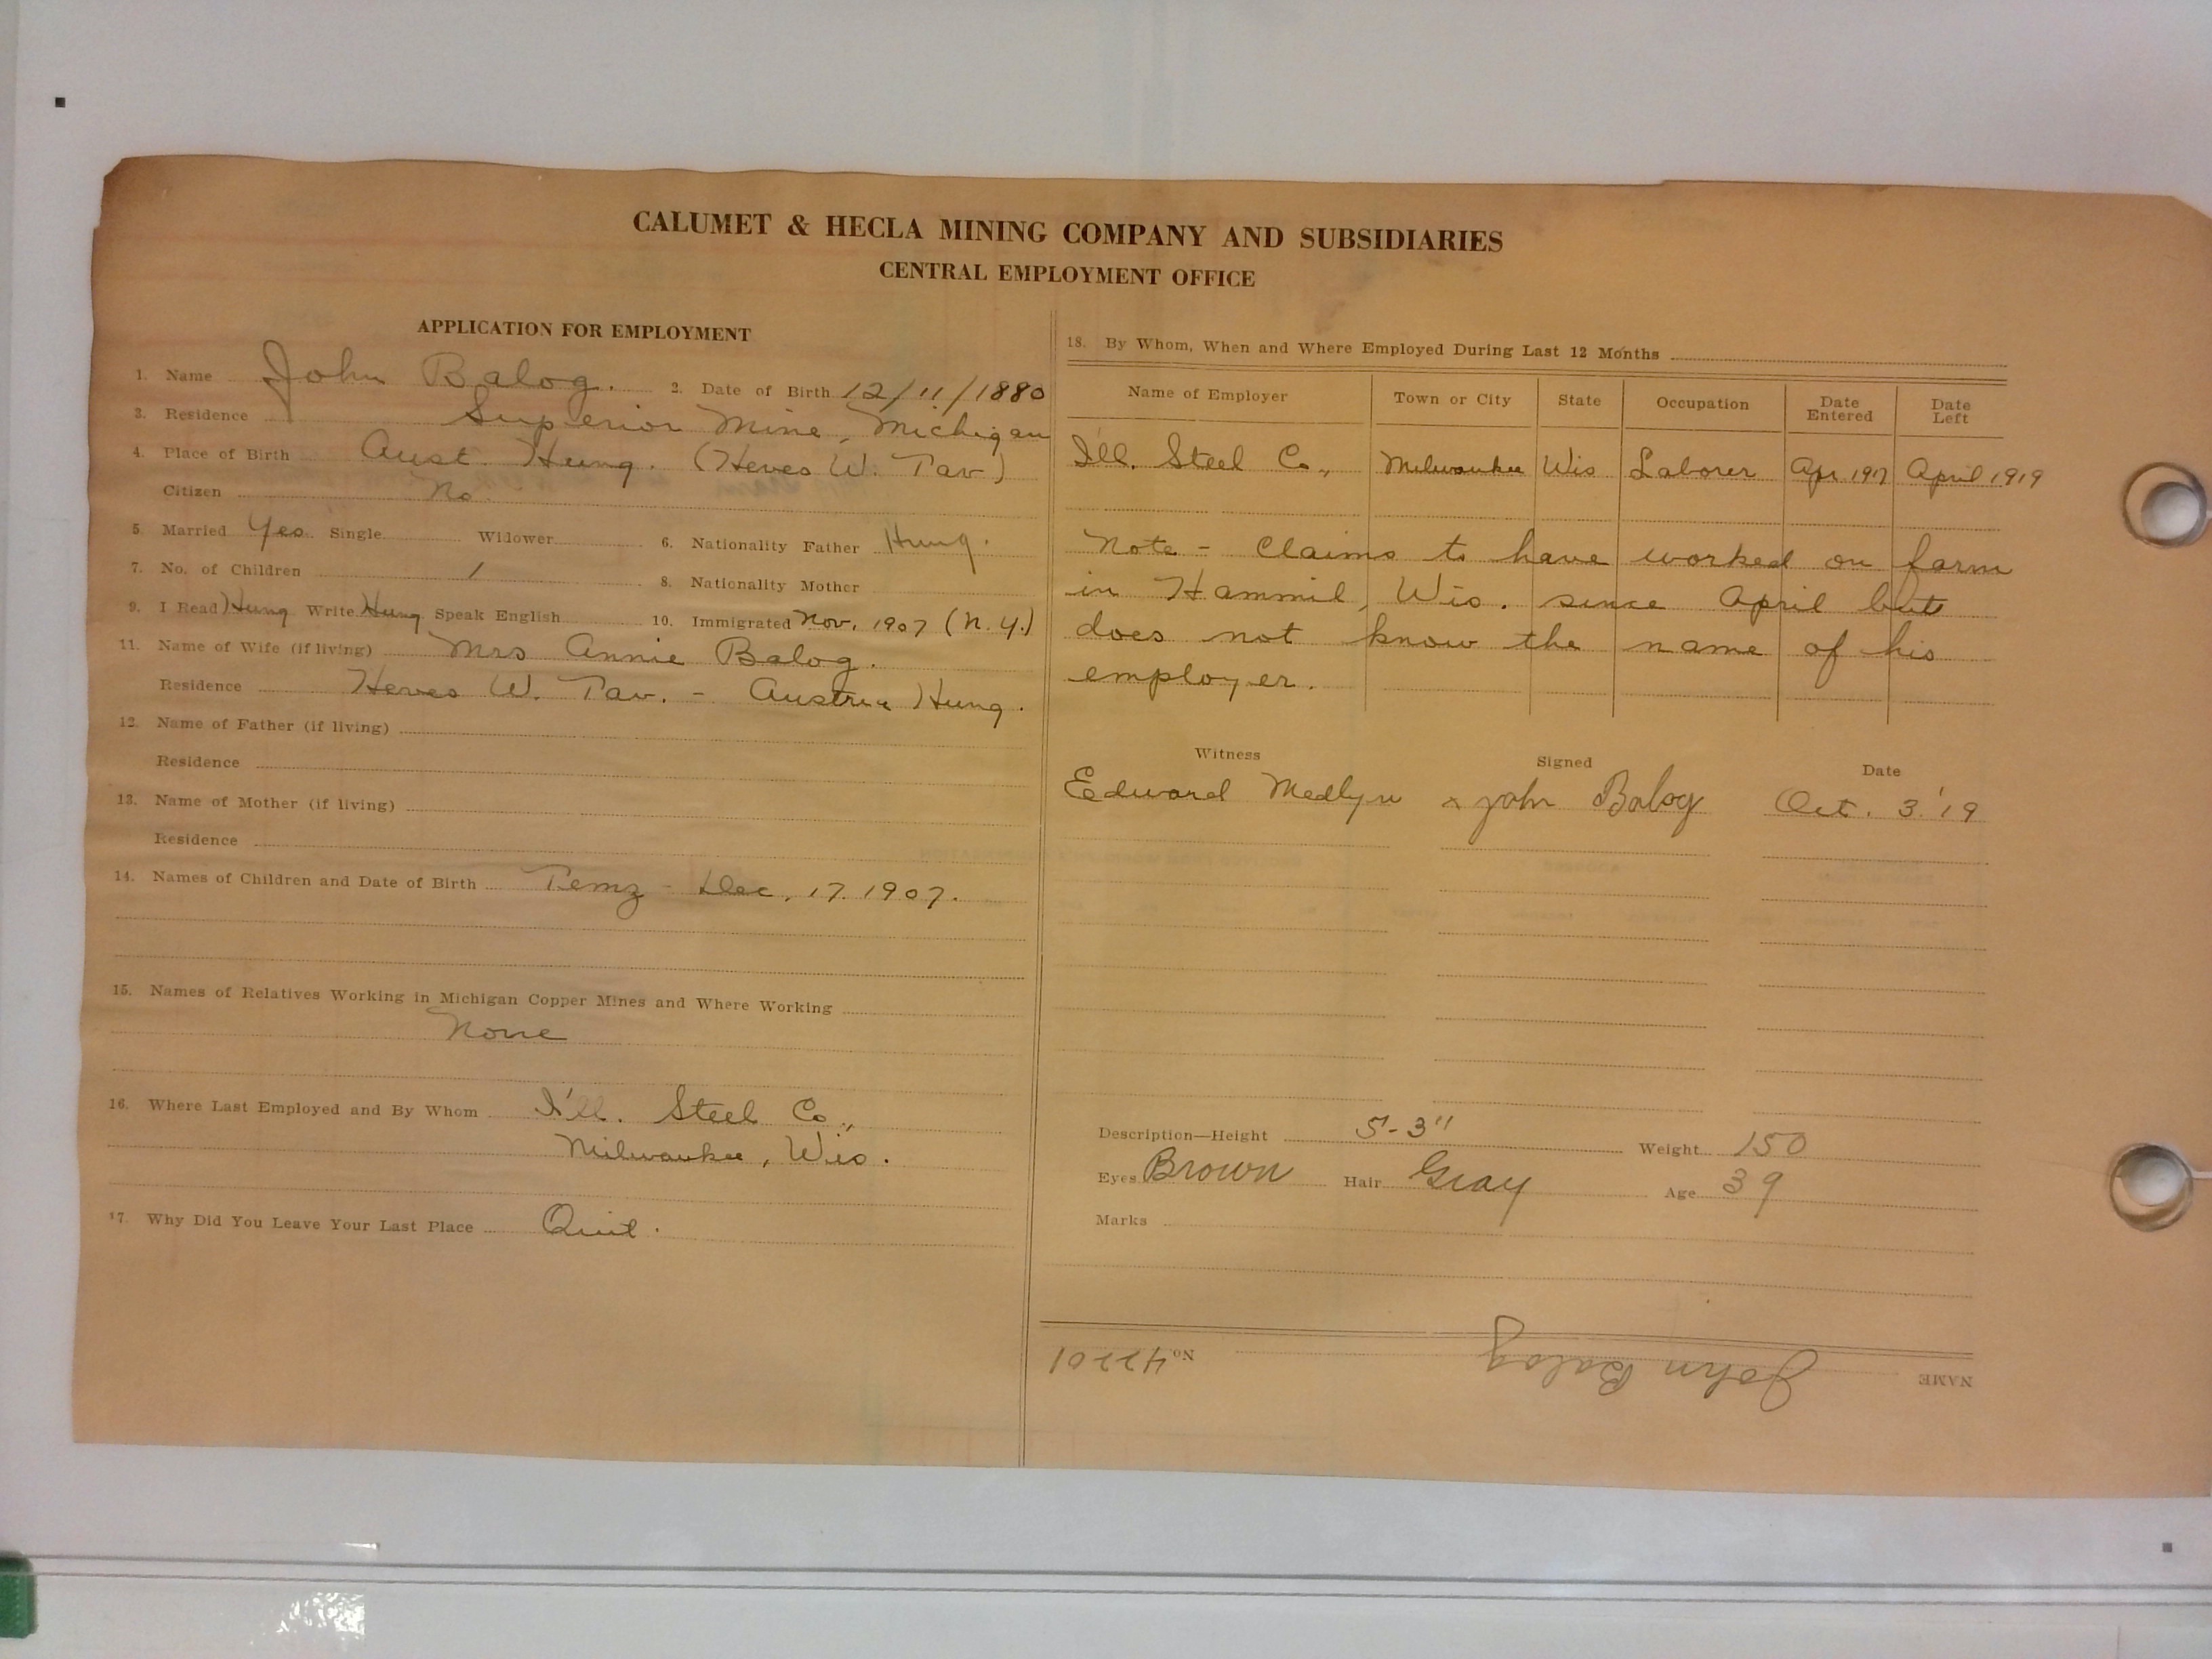 CALUMET & HECLA MINING COMPANY AND SUBSIDIARIES
CENTRAL EMPLOYMENT OFFICE
APPLICATION FOR EMPLOYMENT
1. Name John Balog. 2. Date of Birth 12/11/1880
3. Residence Superior Mine, Michigan
4. Place of Birth Aust. Hung. (Heves W. Tav)
Citizen No
5. Married Yes Single Widower 6. Nationality Father Hung.
7. No. of Children 1 8. Nationality Mother
9. I Read Hung Write Hung Speak English 10. Immigrated Nov. 1907 (N.Y.)
11. Name of Wife (if living) Mrs Annie Balog.
Residence Heves W. Tav. - Austria Hung.
12. Name of Father (if living)
Residence
13. Name of Mother (if living)
Residence
14. Names of Children and Date of Birth - Dec, 17. 1907.
15. Names of Relatives Working in Michigan Copper Mines and Where Working
None
16. Where Last Employed and By Whom Ill. Steel Co.,
Milwaukee, Wis.
17. Why Did You Leave Your Last Place Quit.
18. By Whom, When and Where Employed During Last 12 Months
Name of Employer Town or City State Occupation Date Entered Date Left
Ill. Steel Co., Milwaukee Wis Laborer Apr 1917 April 1919
Note - Claims to have worked on farm
in Hammil, Wis. since April but
does not know the name of his
employer.
Witness Signed Date
Edward Medlyn x John Balog Oct. 3.'19
Description—Height 5'-3" Weight 150
Eyes Brown Hair Gray Age 39
Marks
NAME John Balog No. 42201